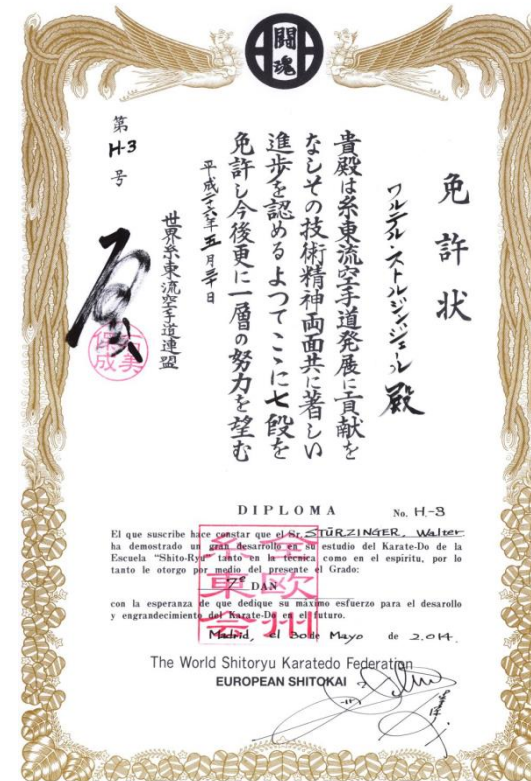 闘魂
免許状
ワルテル・ストルジンジェール殿
貴殿は糸東流空手道発展に貢献を
なしその技術精神両面共に著しい
進歩を認めるよつてここに七段を
免許し今後更に一層の努力を望む
平成二六年五月三十日
世界糸東流空手道連盟
第
H-3
号
DIPLOMA No. H-3
El que suscribe hace constar que el Sr. STÜRZINGER, Walter
ha demostrado un gran desarrollo en su estudio del Karate-Do de la
Escuela "Shito-Ryu" tanto en la técnica como en el espiritu, por lo
tanto le otorgo por medio del presente el Grado:
7º DAN
con la esperanza de que dedique su máximo esfuerzo para el desarollo
y engrandecimiento del Karate-Do en el futuro.
Madrid, el 30 de Mayo de 2.014.
全欧州
糸東会
The World Shitoryu Karatedo Federation
EUROPEAN SHITOKAI